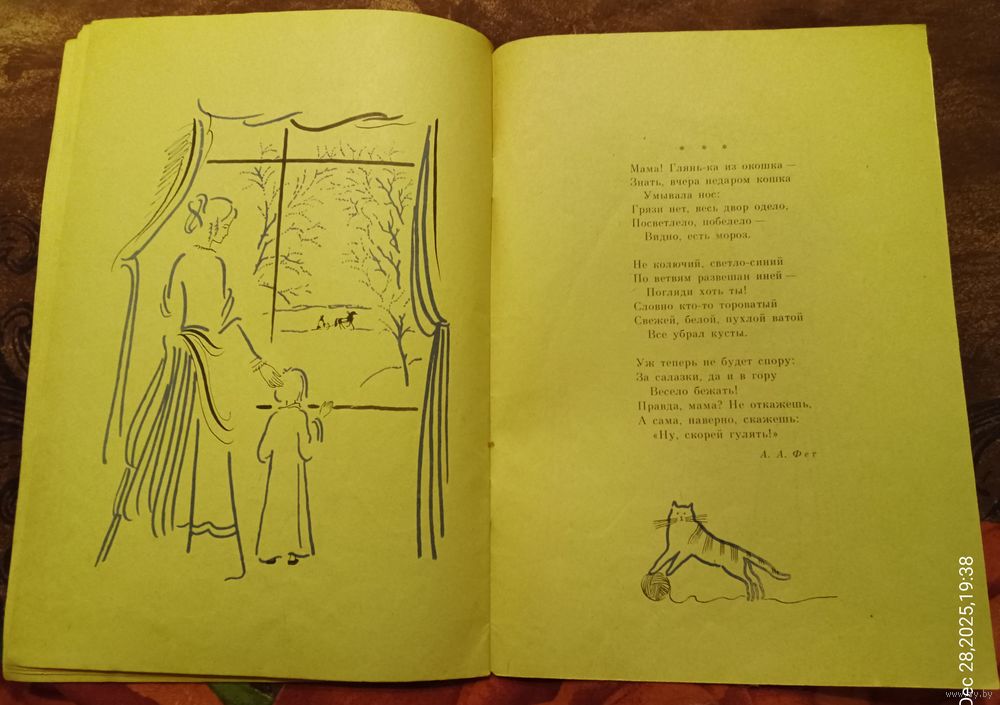 * * *
Мама! Глянь-ка из окошка —
Знать, вчера недаром кошка
Умывала нос:
Грязи нет, весь двор одело,
Посветлело, побелело —
Видно, есть мороз.
Не колючий, светло-синий
По ветвям развешан иней —
Погляди хоть ты!
Словно кто-то тороватый
Свежей, белой, пухлой ватой
Все убрал кусты.
Уж теперь не будет спору:
За салазки, да и в гору
Весело бежать!
Правда, мама? Не откажешь,
А сама, наверно, скажешь:
«Ну, скорей гулять!»
А. А. Фет
Dec 28,2025,19:38
www.ay.by